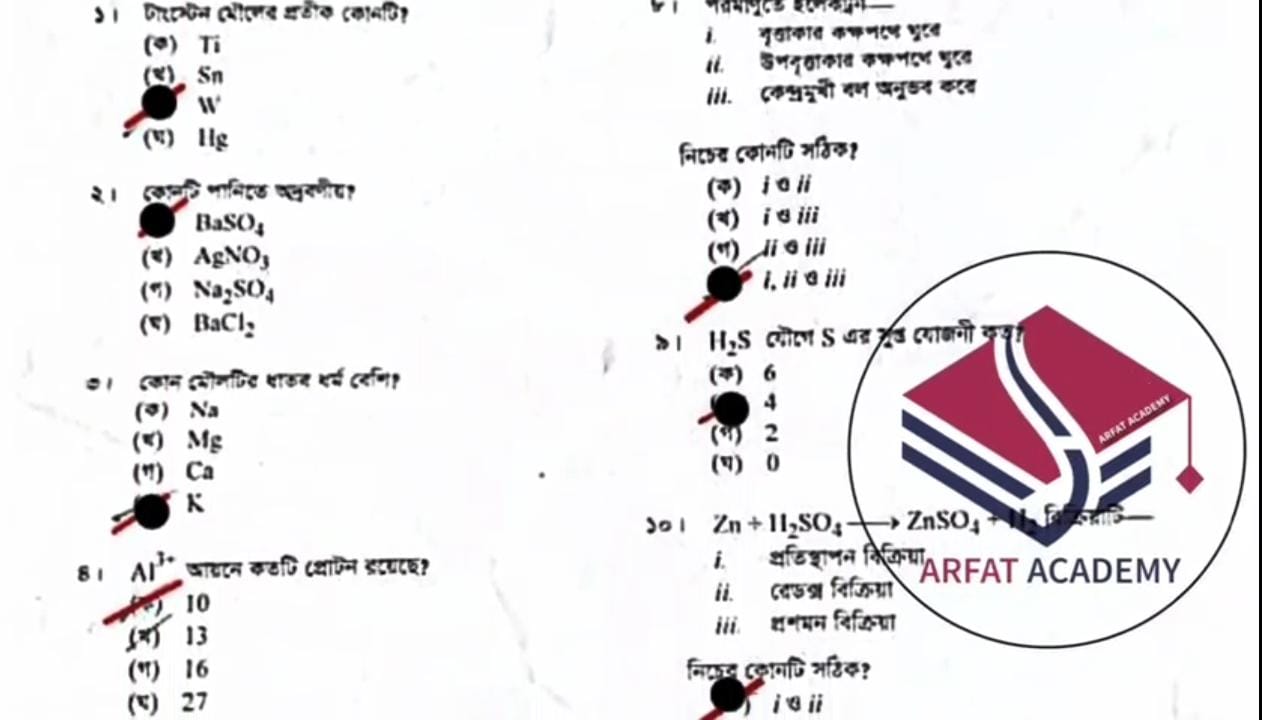 ১। টাংস্টেন মৌলের প্রতীক কোনটি?
(ক) Ti
(খ) Sn
W
(ঘ) Hg
২। কোনটি পানিতে অদ্রবণীয়?
BaSO₄
(খ) AgNO₃
(গ) Na₂SO₄
(ঘ) BaCl₂
৩। কোন মৌলটির ধাতব ধর্ম বেশি?
(ক) Na
(খ) Mg
(গ) Ca
K
৪। Al³⁺ আয়নে কতটি প্রোটন রয়েছে?
(ক) 10
(খ) 13
(গ) 16
(ঘ) 27
৮। পরমাণুতে ইলেকট্রন—
i. বৃত্তাকার কক্ষপথে ঘুরে
ii. উপবৃত্তাকার কক্ষপথে ঘুরে
iii. কেন্দ্রমুখী বল অনুভব করে
নিচের কোনটি সঠিক?
(ক) i ও ii
(খ) i ও iii
(গ) ii ও iii
i, ii ও iii
৯। H₂S যৌগে S এর সুপ্ত যোজনী কত?
(ক) 6
4
(গ) 2
(ঘ) 0
১০। Zn + H₂SO₄ ⟶ ZnSO₄ + H₂ বিক্রিয়াটি—
i. প্রতিস্থাপন বিক্রিয়া
ii. রেডক্স বিক্রিয়া
iii. প্রশমন বিক্রিয়া
নিচের কোনটি সঠিক?
) i ও ii
ARFAT ACADEMY
ARFAT ACADEMY